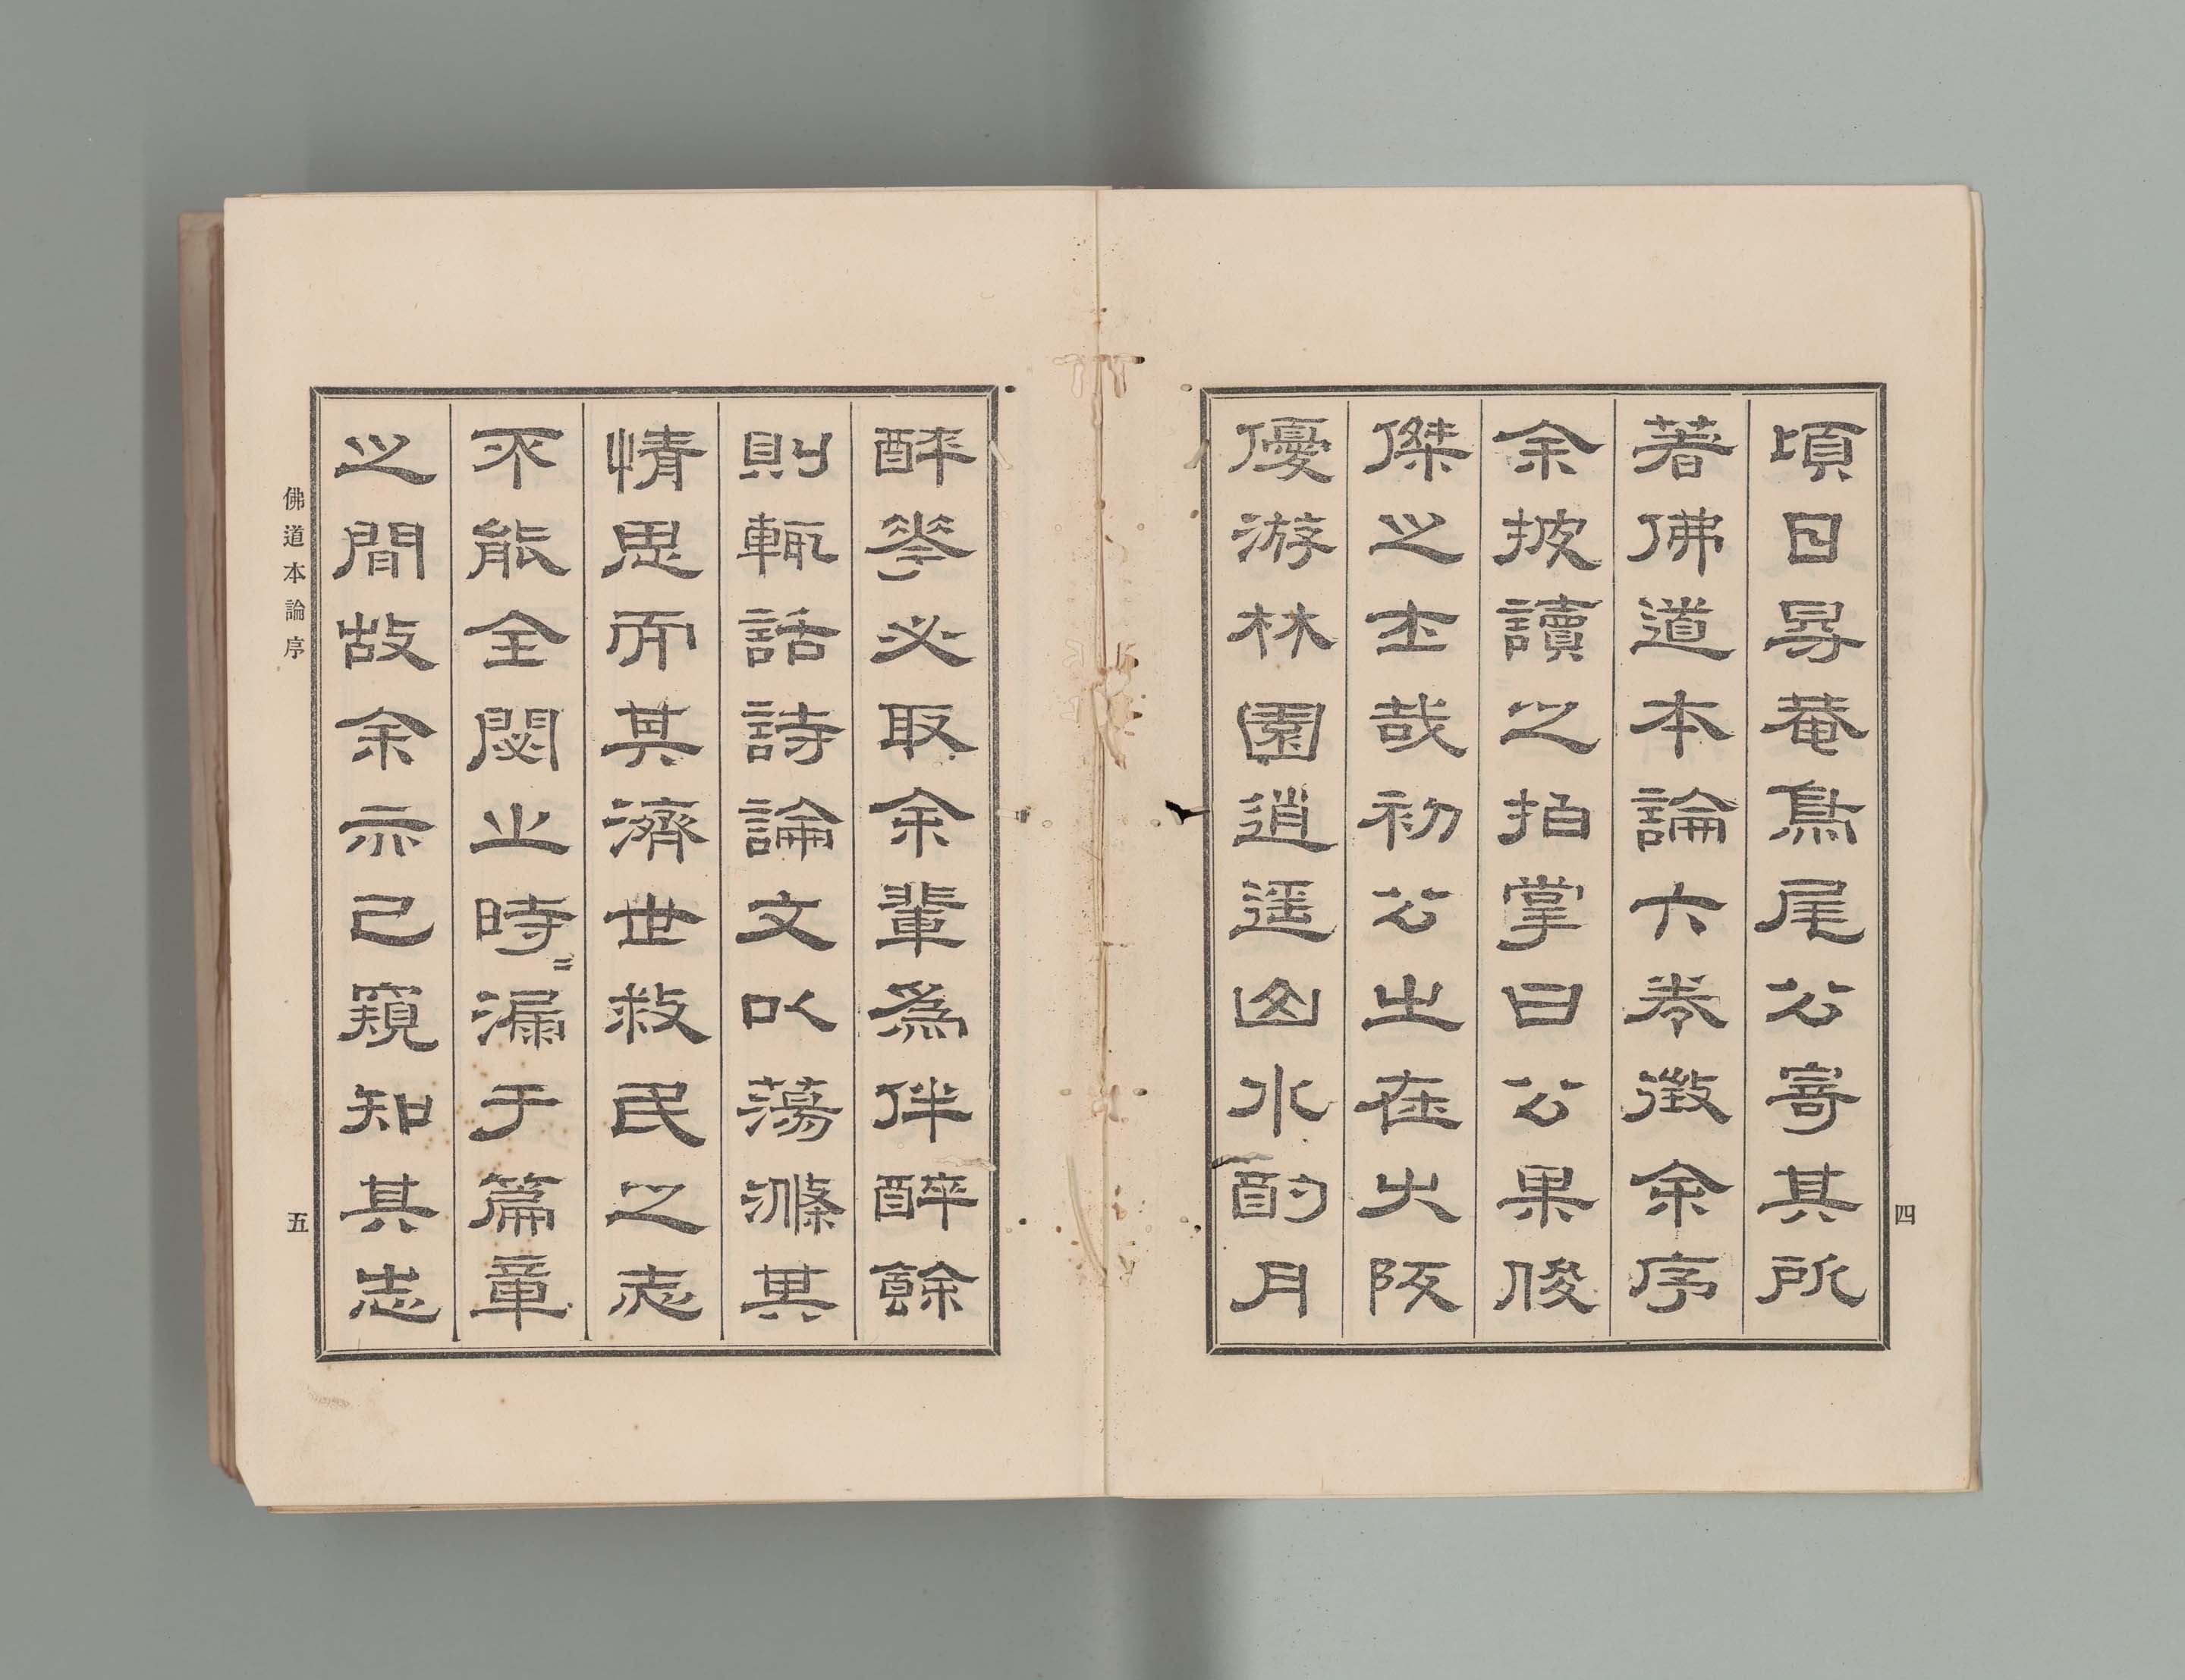 頃日㝵菴鳥尾公寄其所
著佛道本論六卷徵余序
余披讀之拍掌曰公果俊
傑之士哉初公之在大阪
優游林園逍遥山水酌月
四
醉華必取余輩爲伴醉餘
則輒話詩論文以蕩滌其
情思而其濟世救民之志
不能全閟止時〻漏于篇章
之間故余亦已窺知其志
佛道本論序
五